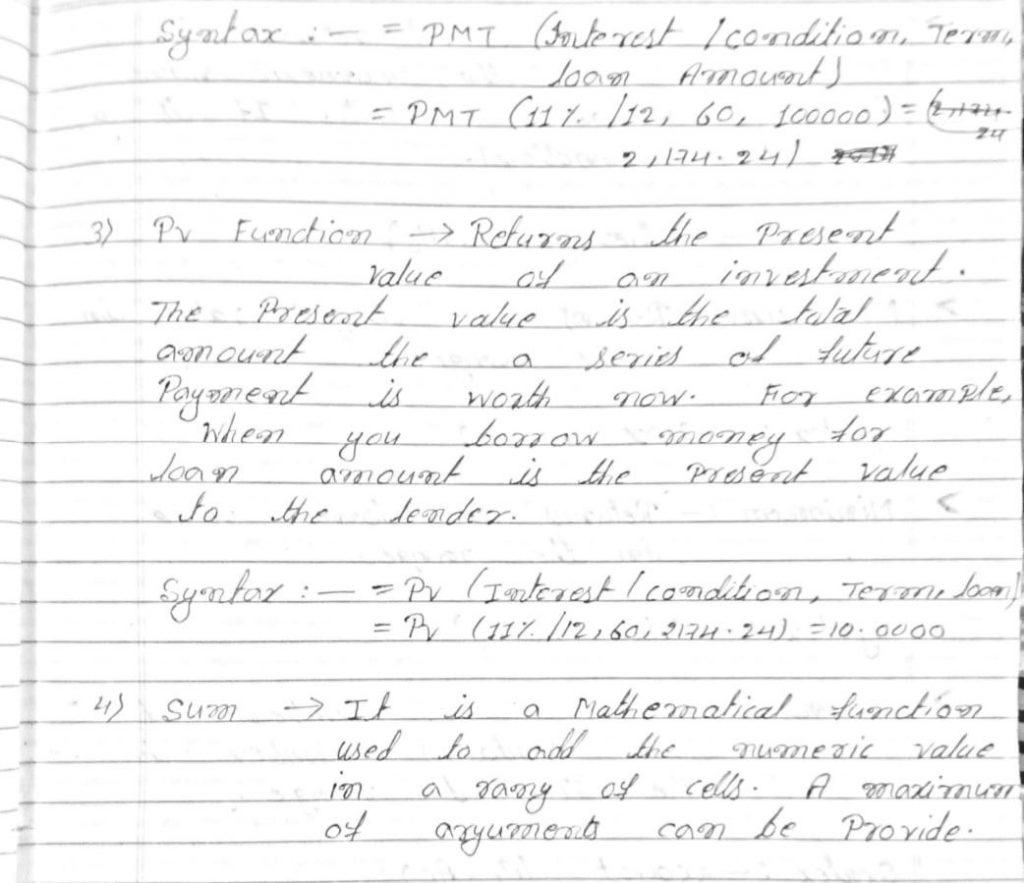 Syntax :- = PMT (Interest / condition, Term,
loan Amount)
= PMT (11% /12, 60, 100000) =
2,174.24)
3) Pv Function → Returns the Present
value of an investment.
The Present value is the total
amount the a series of future
Payment is worth now. For example,
When you borrow money for
loan amount is the present value
to the lender.
Syntax :- = Pv (Interest / condition, Term, loan)
= Pv (11% /12, 60, 2174.24) =10.0000
4) Sum → It is a Mathematical function
used to add the numeric value
in a rang of cells. A maximum
of arguments can be Provide.